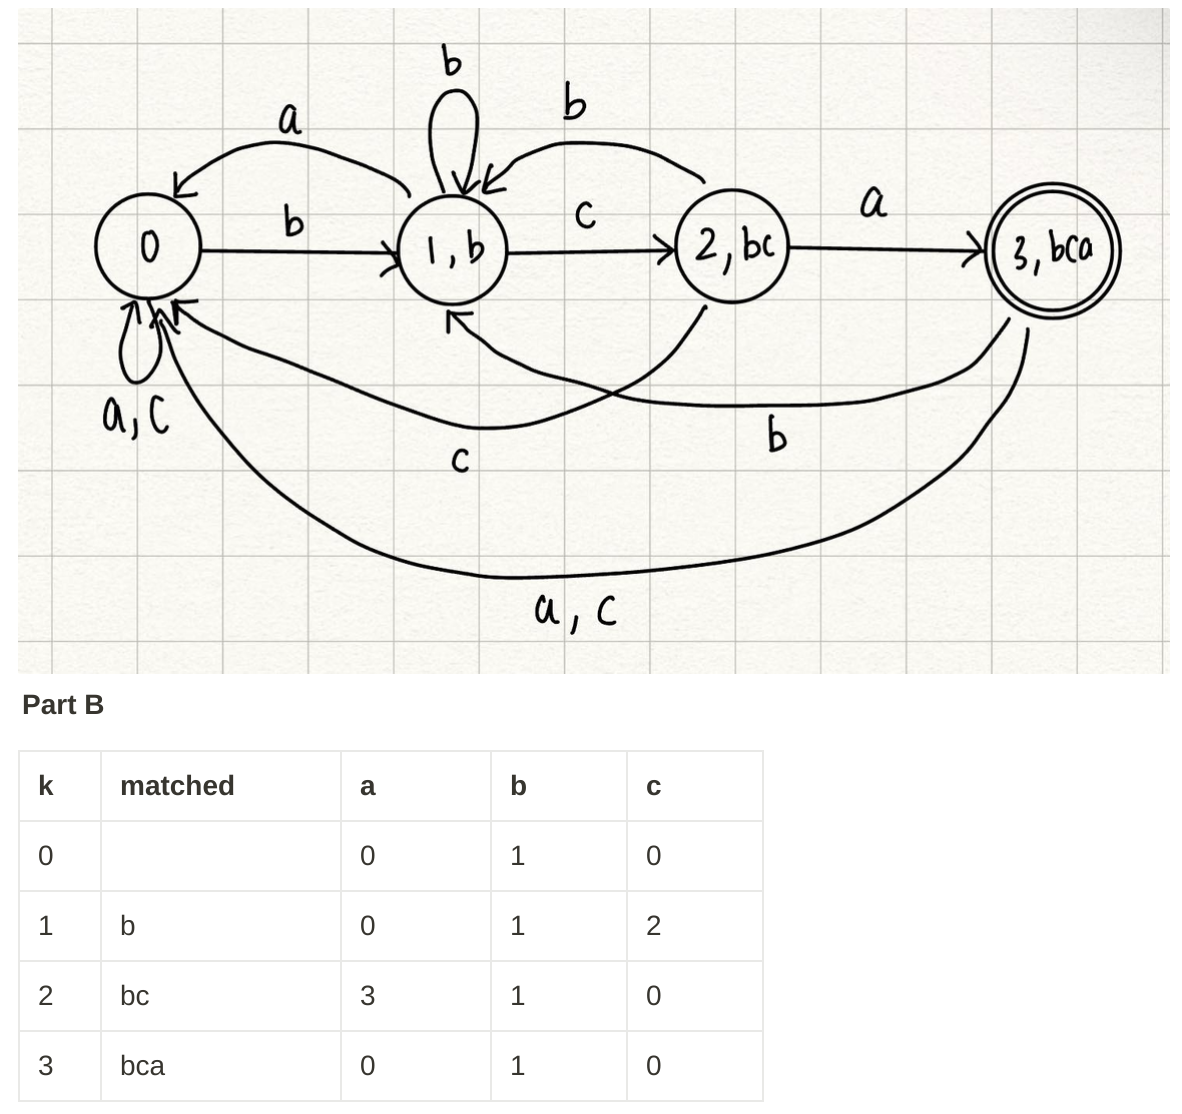 b
b
a
a
c
b
0
1, b
2, bc
3, bca
a, c
b
c
a, c
Part B
k matched a b c
0 0 1 0
1 b 0 1 2
2 bc 3 1 0
3 bca 0 1 0